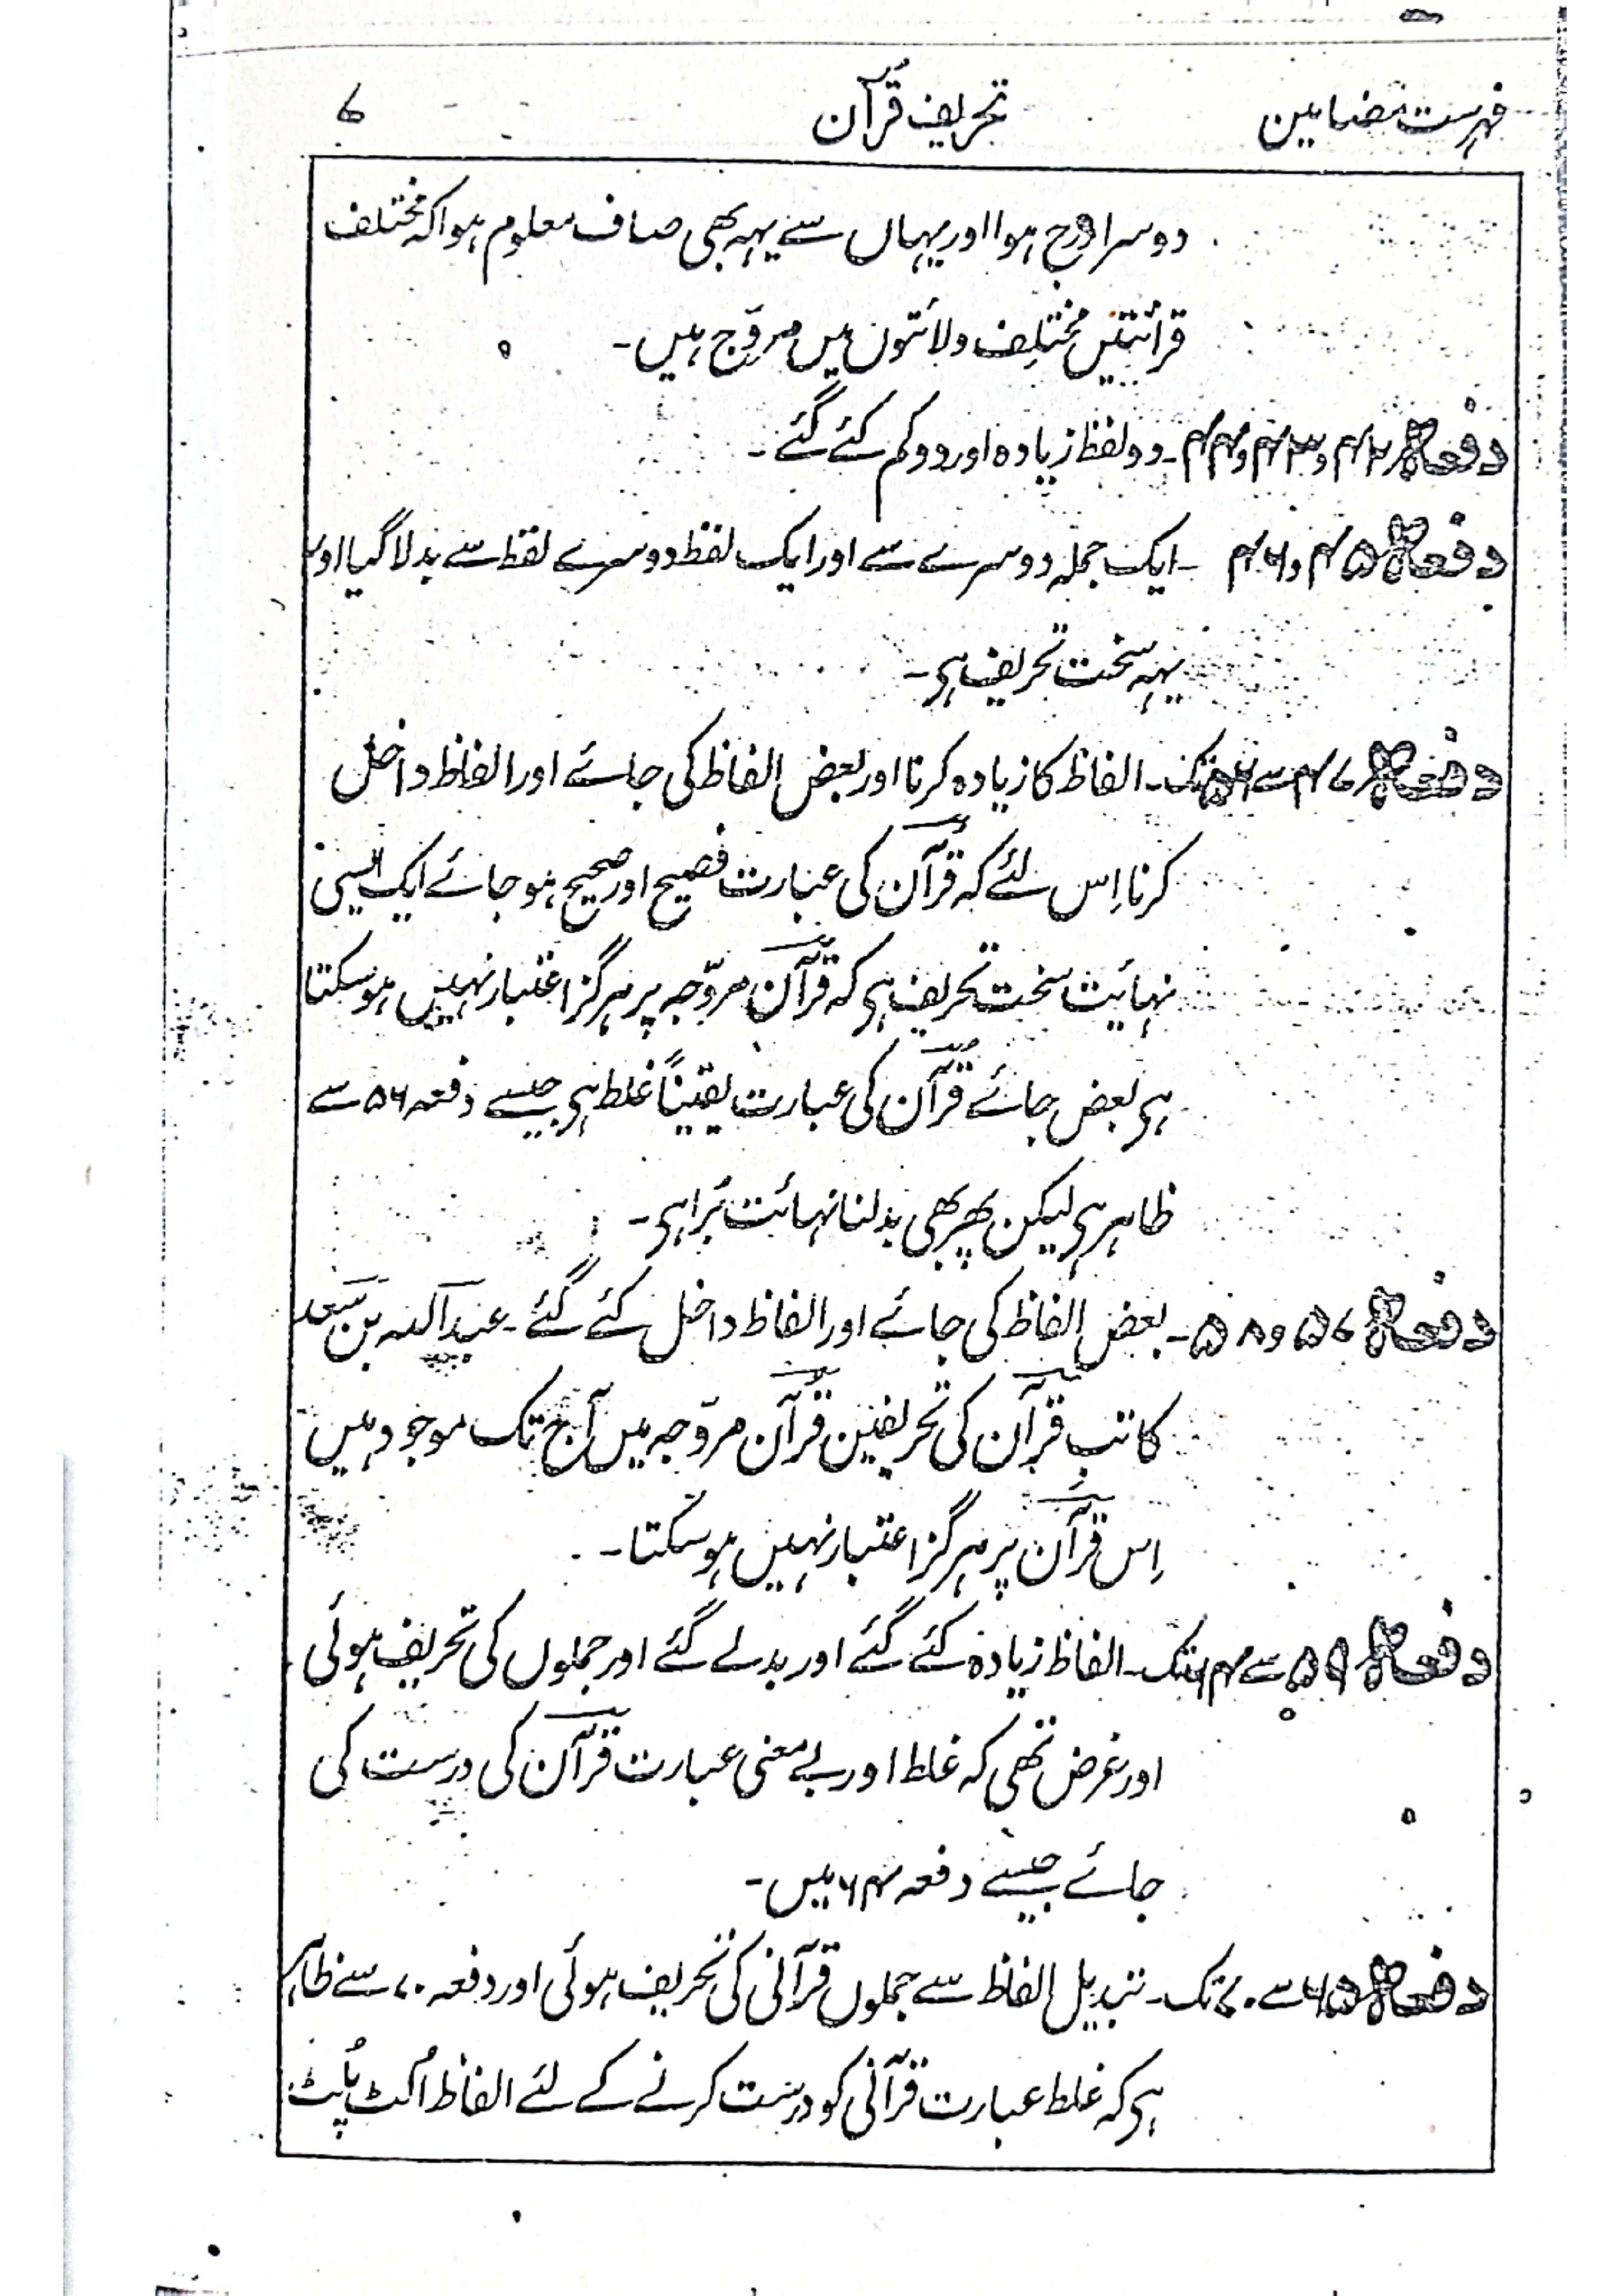 فہرست مضامین تحریف قُرآن ۷
دوسرا درج ہوا اور یہاں سے یہہ بھی صاف معلوم ہوا کہ مختلف
قرائتیں مختلِف ولائتوں میں مروّج ہیں۔
دفعہ ۴۲ و ۴۳ و ۴۴۔ دو لفظ زیادہ اور دو کم کئے گئے۔
دفعہ ۴۵ و ۴۶ ۔ ایک جملہ دوسرے سے اور ایک لفظ دوسرے لفظ سے بدلا گیا اور
یہہ سخت تحریف ہی۔
دفعہ ۴۷ سے ۵۶ تک۔ الفاظ کا زیادہ کرنا اور بعض الفاظ کی جائے اور الفاظ داخل
کرنا اِس لئے کہ قُرآن کی عبارت فصیح اور صحیح ہو جائے ایک ایسی
نہائیت سخت تحریف ہی کہ قرآن مروّجہ پر ہرگز اعتبار نہیں ہو سکتا
ہی بعض جائے قُرآن کی عبارت یقیناً غلط ہی جیسے دفعہ ۵۶ سے
ظاہر ہی لیکن پھر بھی بدلنا نہائت بُرا ہی۔
دفعہ ۵۷ و ۵۸۔ بعض الفاظ کی جائے اور الفاظ داخل کئے گئے۔ عبد اللہ بن سعد
کاتب قرآن کی تحریفیں قُرآن مروّجہ میں آج تک موجود ہیں
اِس قرآن پر ہرگز اعتبار نہیں ہو سکتا۔
دفعہ ۵۹ سے ۶۴ تک۔ الفاظ زیادہ کئے گئے اور بدلے گئے اور جملوں کی تحریف ہوئی
اور غرض تھی کہ غلط اور بے معنی عبارت قرآن کی درست کی
جائے جیسے دفعہ ۶۴ میں۔
دفعہ ۶۵ سے ۷۰ تک۔ تبدیل الفاظ سے جملوں قرآنی کی تحریف ہوئی اور دفعہ ۷۰ سے ظاہر
ہی کہ غلط عبارت قرآنی کو درست کرنے کے لئے الفاظ اُلٹ پُلٹ